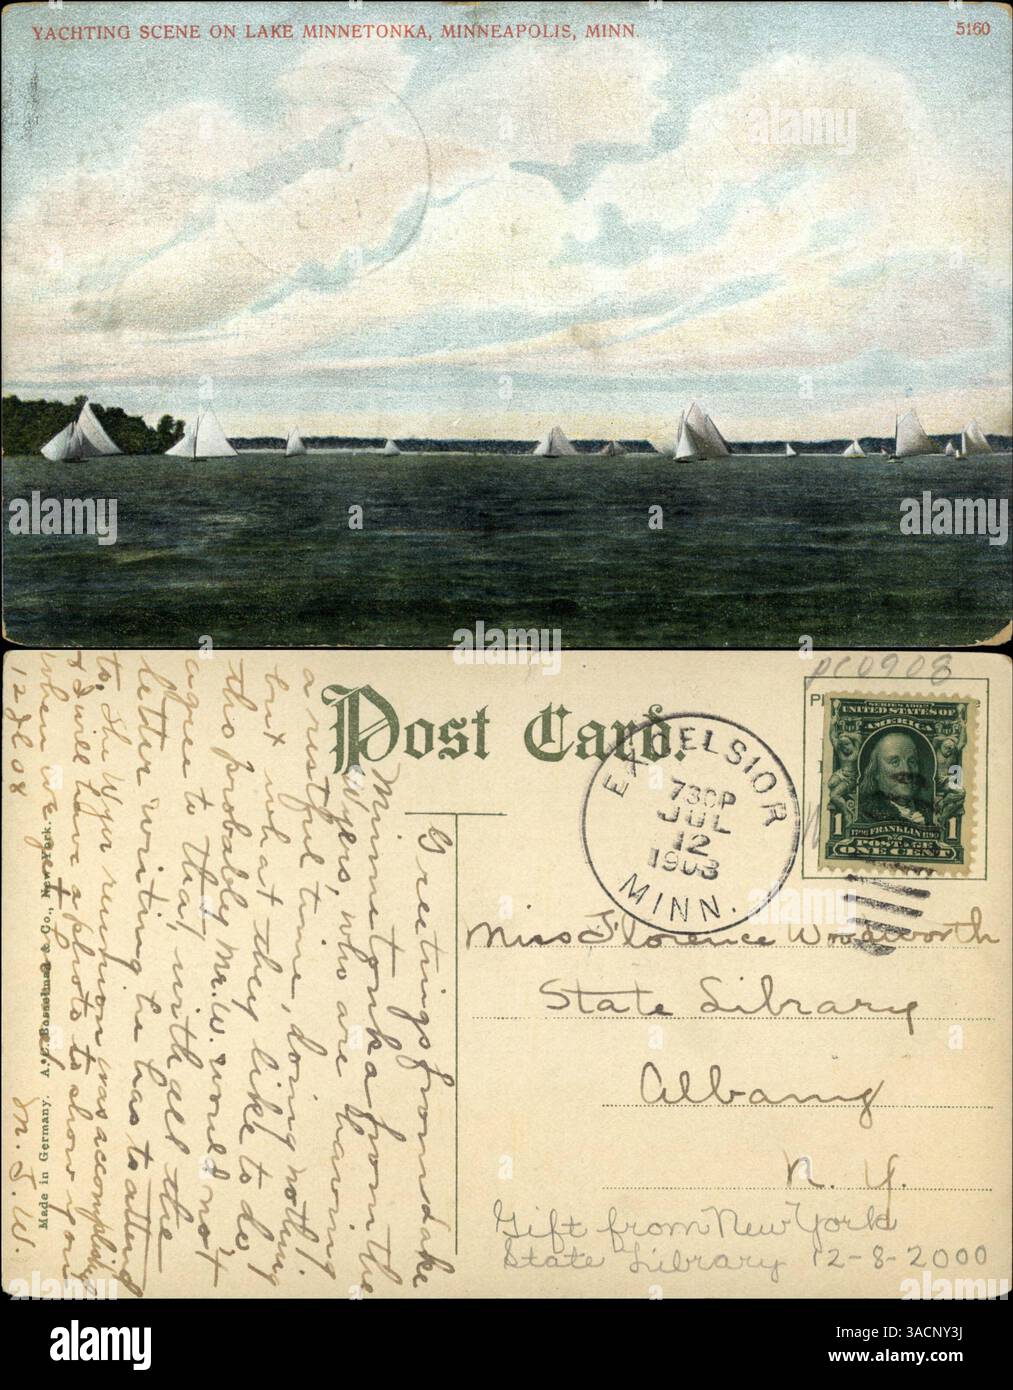 YACHTING SCENE ON LAKE MINNETONKA, MINNEAPOLIS, MINN.
5160
PC0908
Post Card.
EXCELSIOR
730P
JUL
12
1908
MINN.
SERIES 1902
UNITED STATES OF
AMERICA
1 1790 FRANKLIN 1790 1
POSTAGE
ONE CENT
Greetings from Lake
Minnetonka from the
Wyers, who are having
a restful time, doing nothing
but what they like to do,
tho probably Mr. W. would not
agree to that, with all the
letter writing he has to attend
to. The Wyer reunion was accomplished
& I will have a photo to show you
when we get home!
12 Jl 08
M. I. W.
Made in Germany. A. C. Bosselman & Co., New York.
Miss Florence Woodworth
State Library
Albany
N. Y.
Gift from New York
State Library 12-8-2000
alamy
Image ID: 3ACNY3J
www.alamy.com